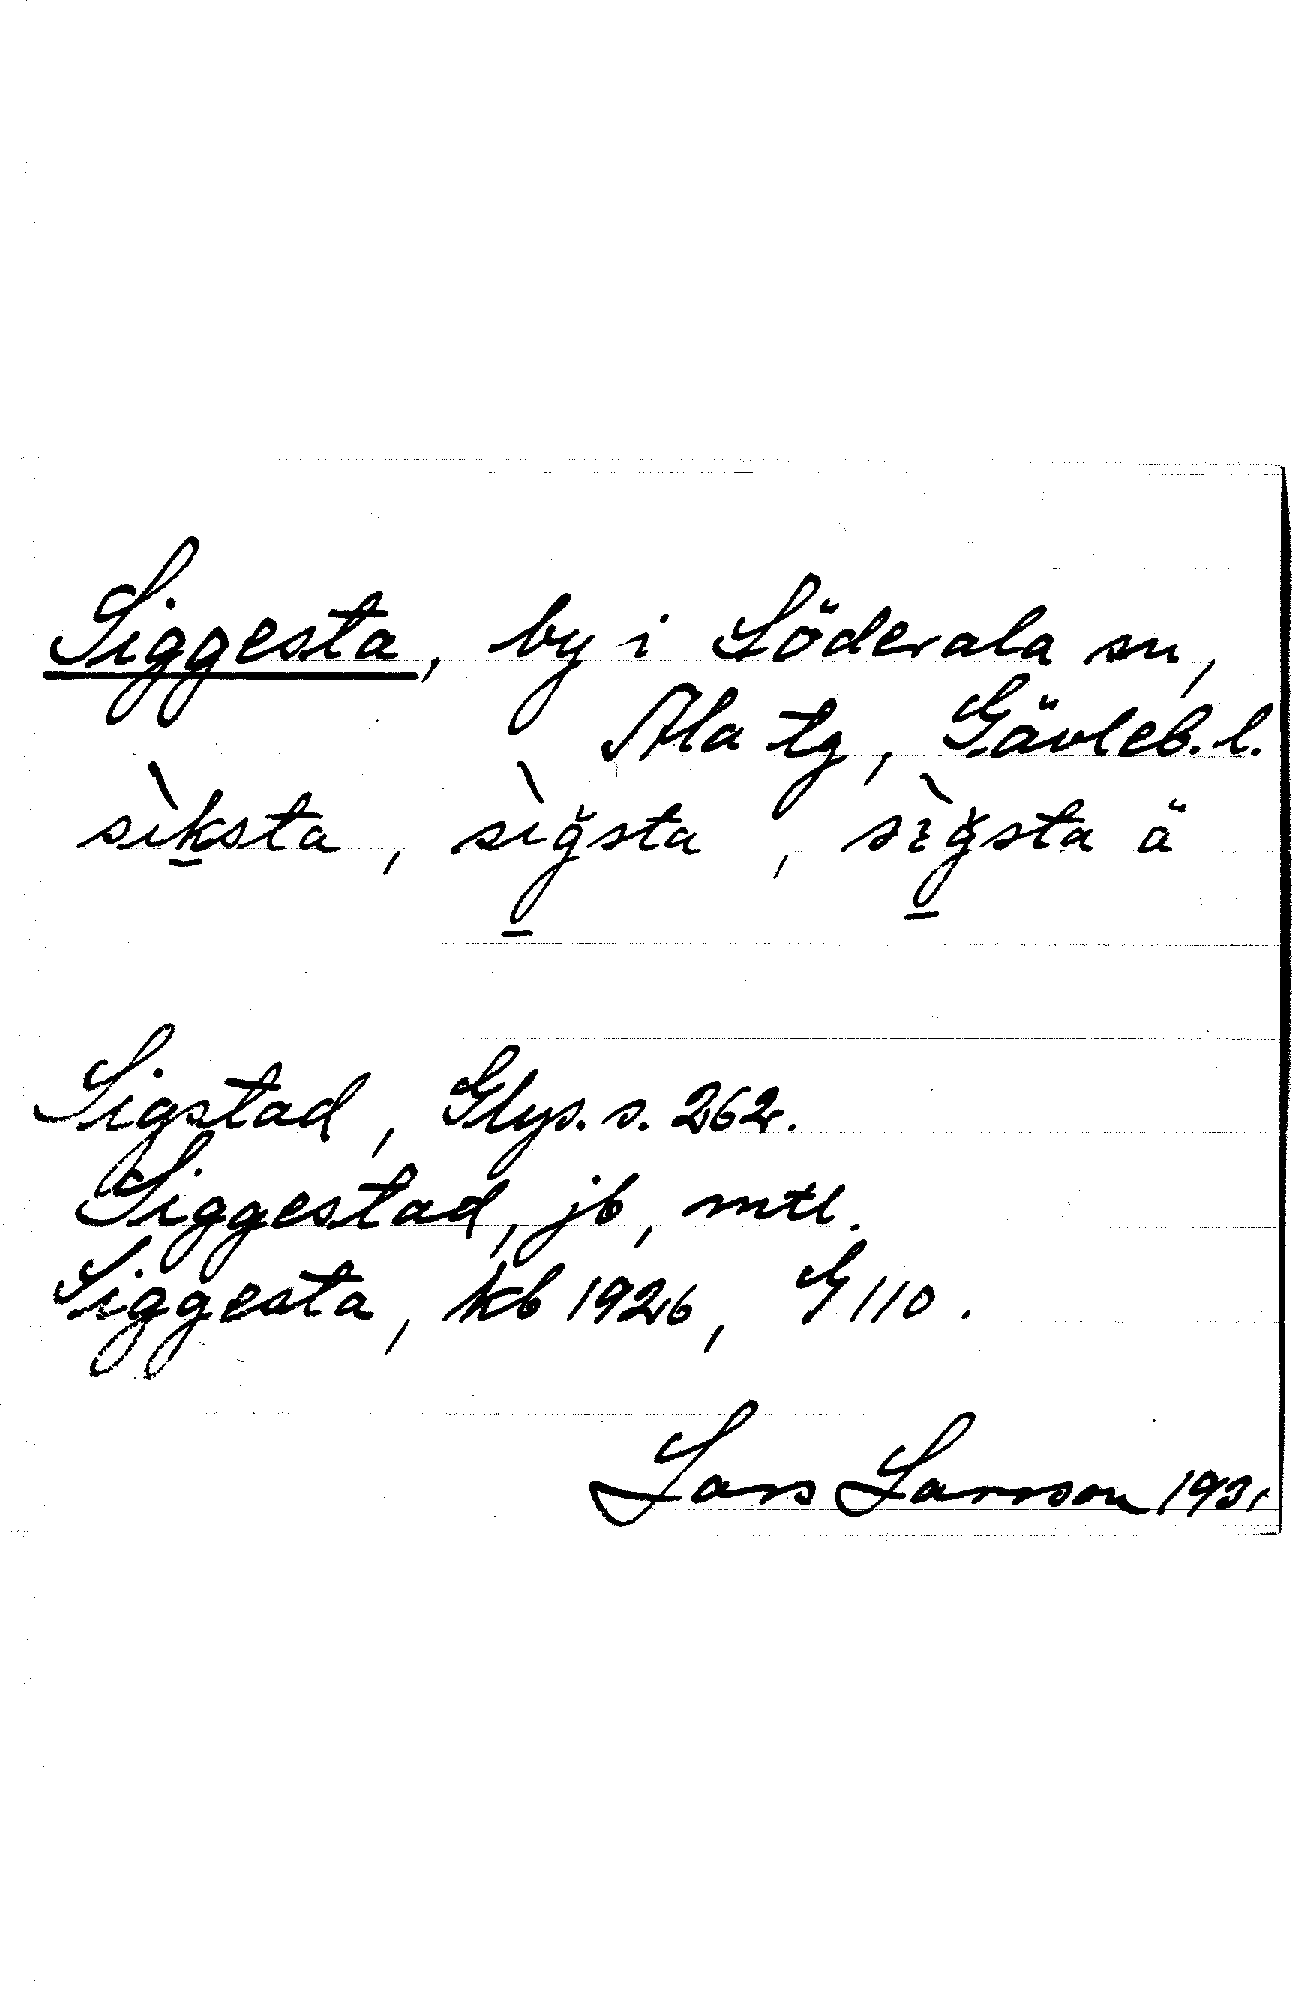 Siggesta, by i Söderala sn,
Ala tg, Gävleb. l.
sìksta, sìgsta, sìgsta ä
Sigstad, Glys. s. 262.
Siggestad, jb, mtl.
Siggesta, kb 1926, G 110.
Lars Larsson 1931